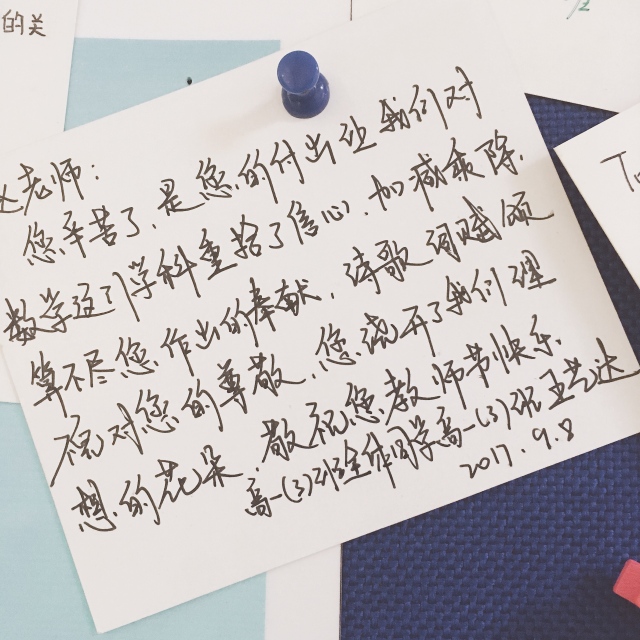 的关
老师：
您辛苦了，是您的付出让我们对
数学这门学科重拾了信心，加减乘除，
算不尽您作出的奉献，诗歌词赋颂
不完对您的尊敬，您浇开了我们理
想的花朵，敬祝您教师节快乐，
高一(3)班全体同学高一(3)班王艺达
2017.9.8